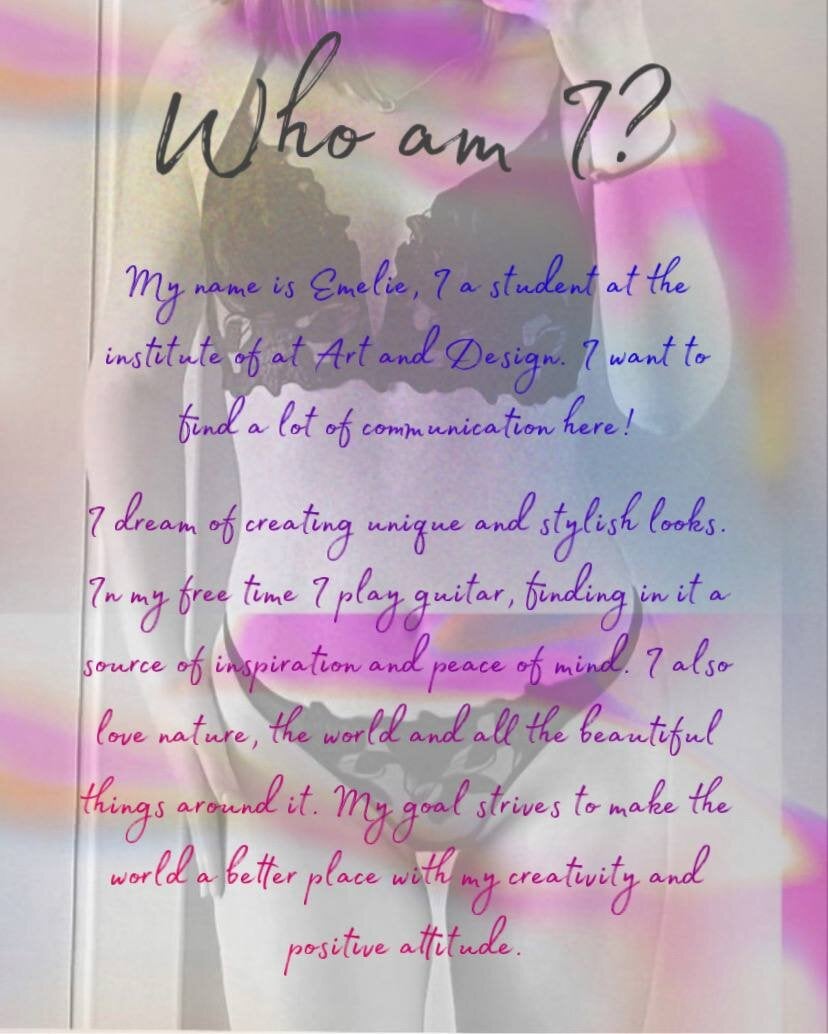 Who am I?
My name is Emelie, I a student at the
institute of at Art and Design. I want to
find a lot of communication here!
I dream of creating unique and stylish looks.
In my free time I play guitar, finding in it a
source of inspiration and peace of mind. I also
love nature, the world and all the beautiful
things around it. My goal strives to make the
world a better place with my creativity and
positive attitude.